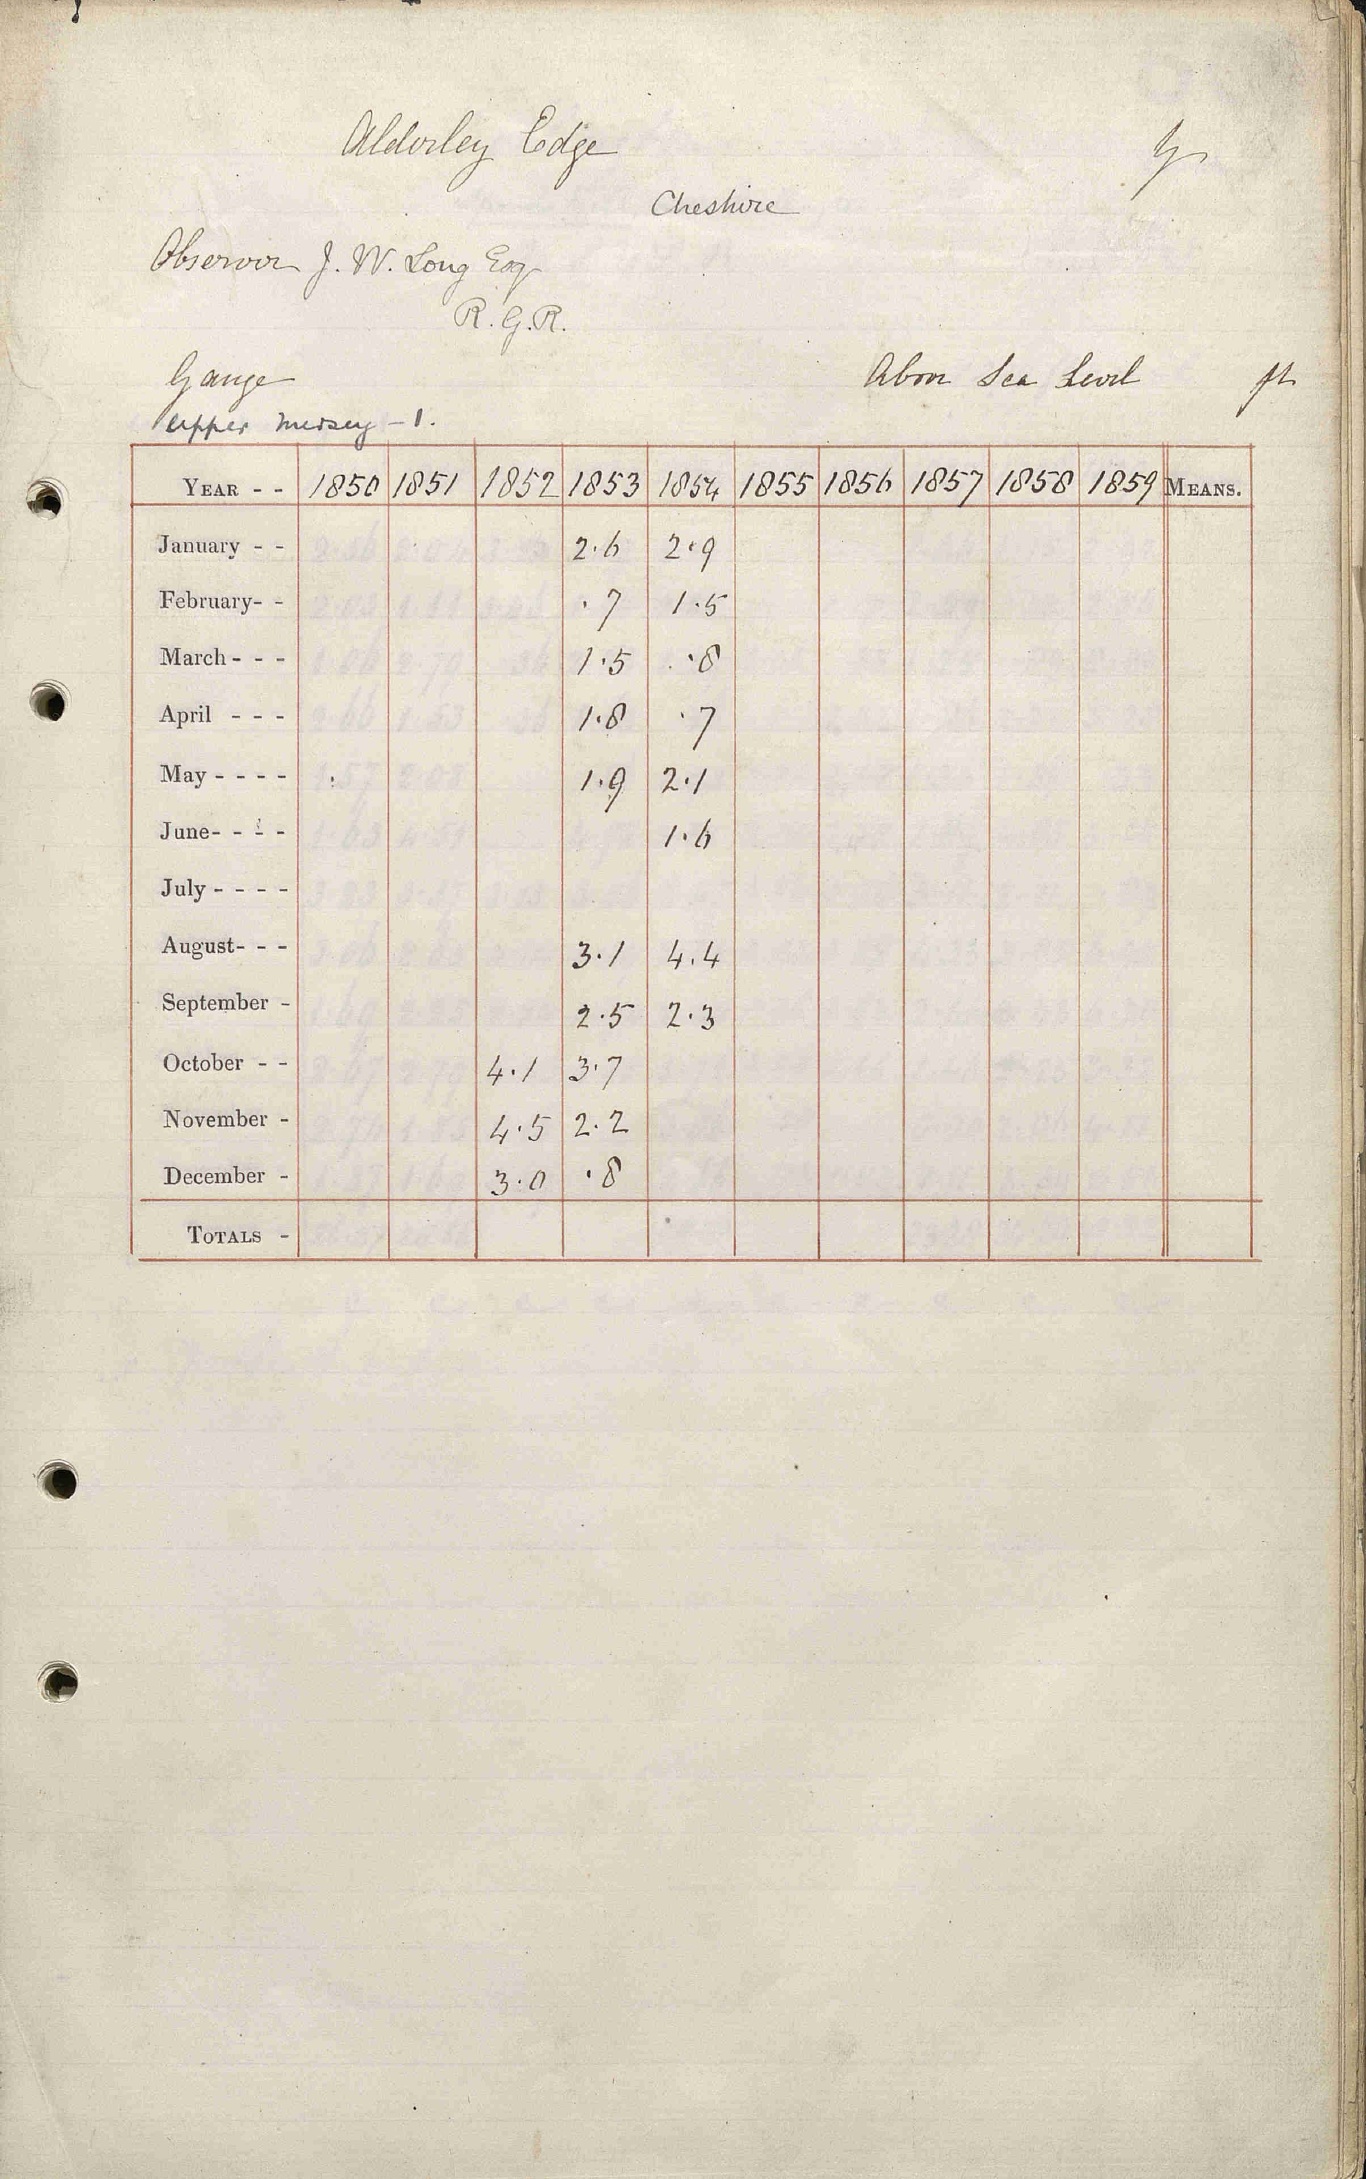 Alderley Edge
Cheshire
Observer J. W. Long Esq
R. G. R.
Gauge Above Sea Level ft
Upper Mersey - 1.
YEAR - - 1850 1851 1852 1853 1854 1855 1856 1857 1858 1859 MEANS.
January - - 2.6 2.9
February - - .7 1.5
March - - - 1.5 .8
April - - - 1.8 .7
May - - - - 1.9 2.1
June - - - - 1.6
July - - - -
August - - - 3.1 4.4
September - 2.5 2.3
October - - 4.1 3.7
November - 4.5 2.2
December - 3.0 .8
TOTALS -